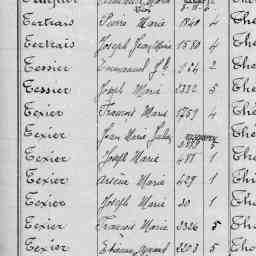 Tertrais Pierre Marie 1840 4 The
Tertrais Joseph Jean Marie 1580 4 The
Tessier Emmanuel 2 The
Tessier Joseph Marie 2332 5 The
Texier François Marie 1759 4 The
Texier Jean Marie Julien 5 The
Texier Joseph Marie 481 1 The
Texier Arsène Marie 429 1 The
Texier Joseph Marie 30 1 The
Texier François Marie 2326 5 Tho
Texier Etienne 2203 5 Tho